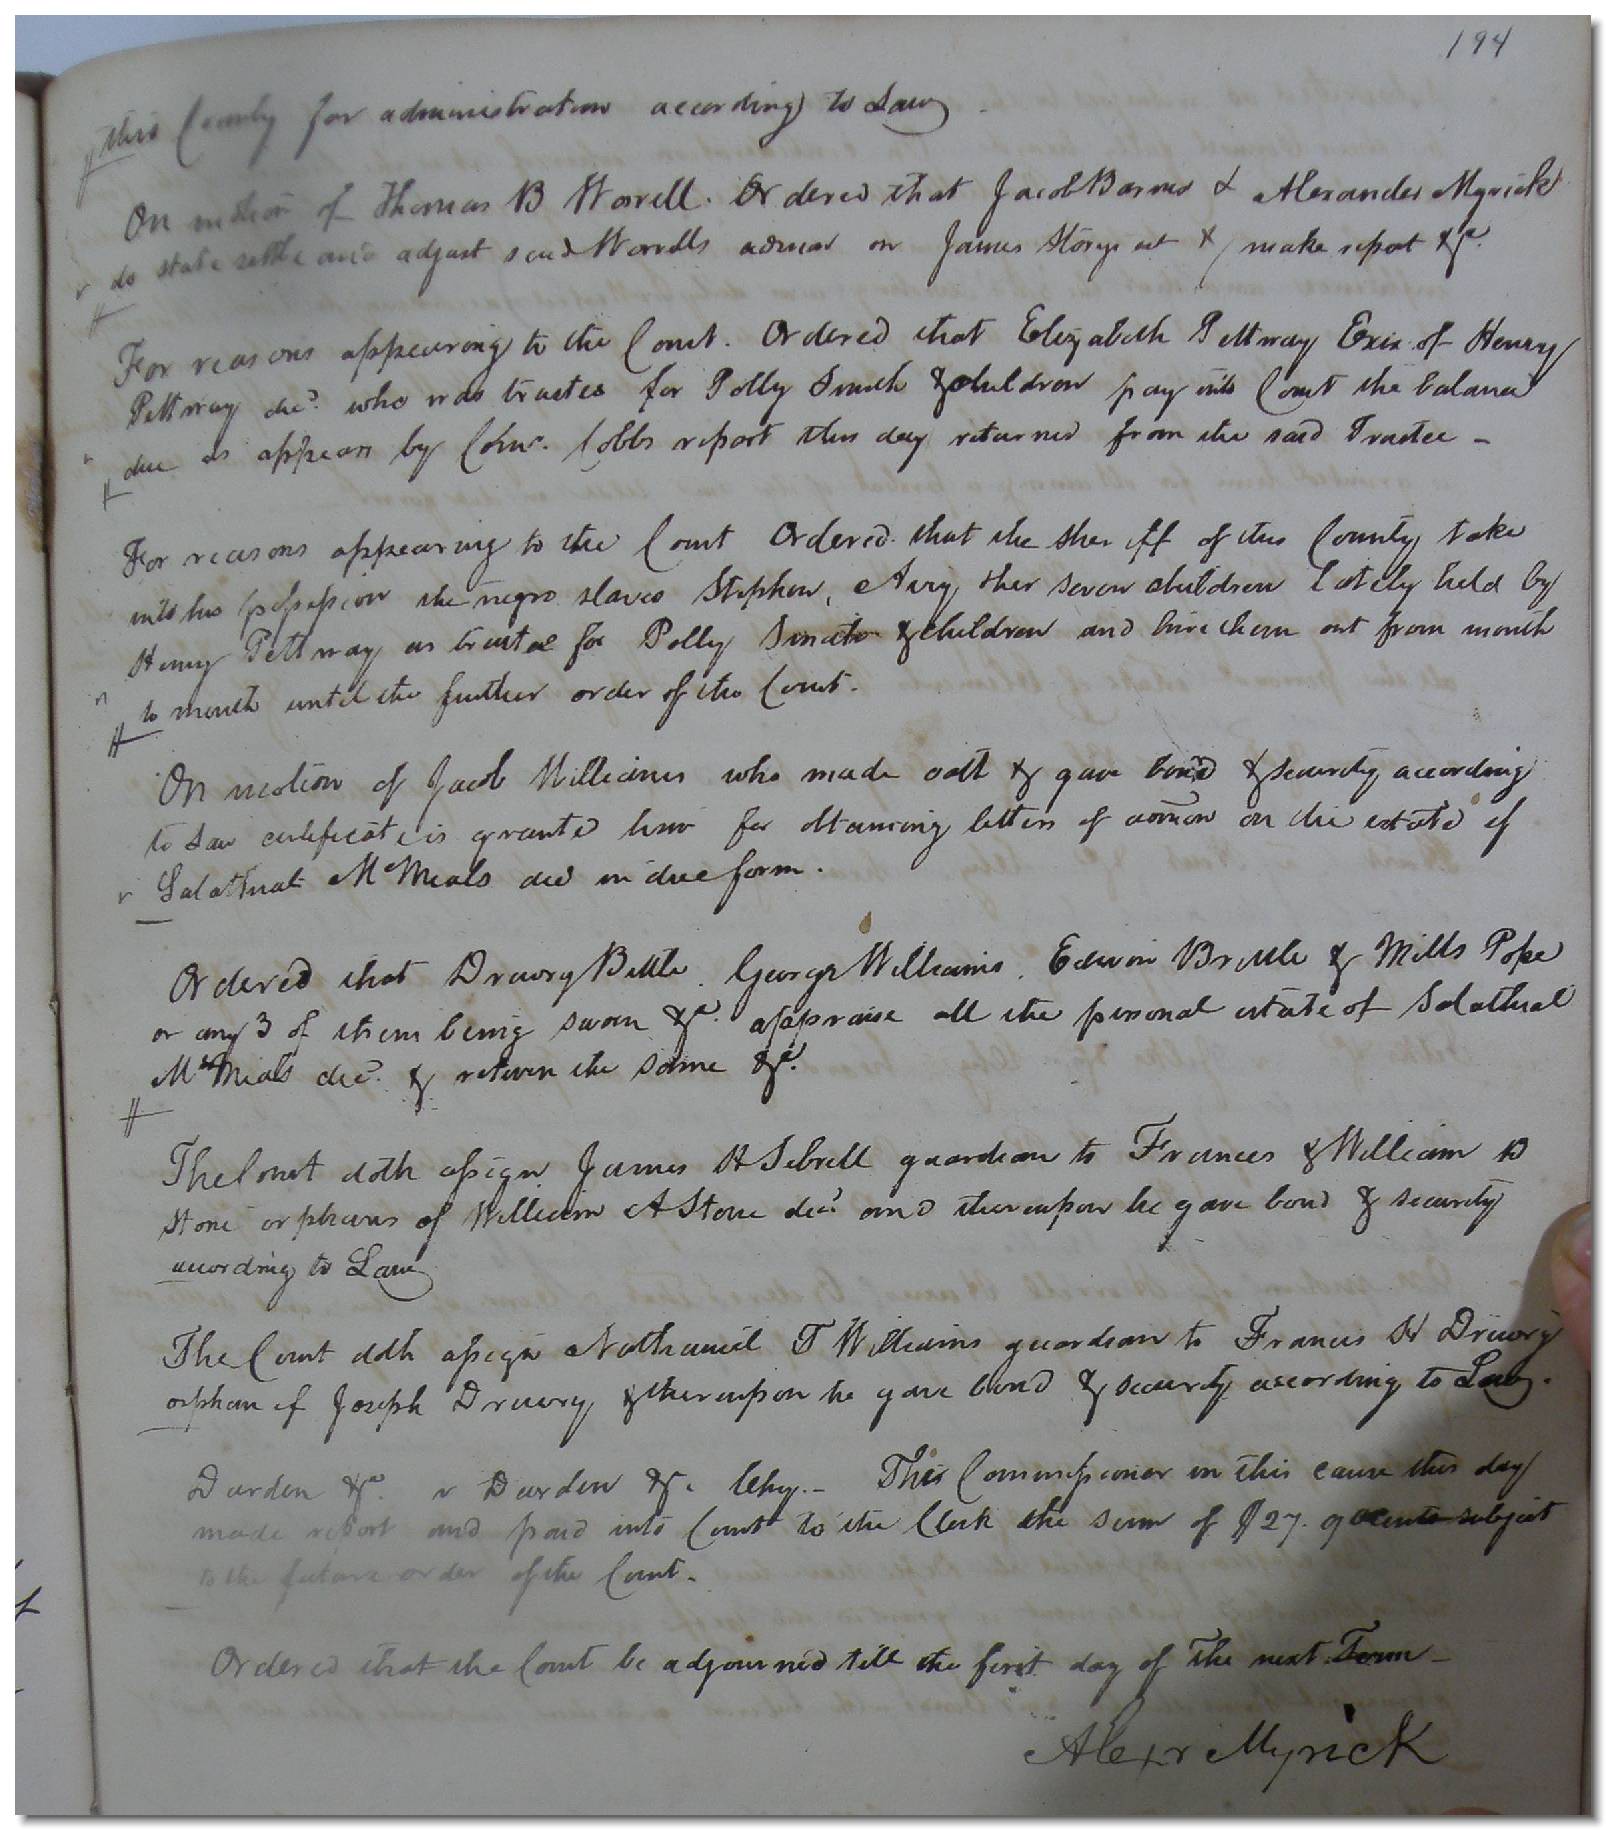 194
this County for administration according to Law
On motion of Thomas B Worrell. Ordered that Jacob Barnes & Alexander Myrick
do state settle and adjust said Worrells admon on James Storys est & make report &c.
For reasons appearing to the Court. Ordered that Elizabeth Pettway Exix of Henry
Pettway decd. who was trustee for Polly Smith & children pay into Court the balance
due as appears by Comr. Cobbs report this day returned from the said Trustee -
For reasons appearing to the Court Ordered that the Sheriff of this County take
into his possession the negro slaves Stephen, Avy & her seven children lately held by
Henry Pettway as trustee for Polly Smith & children and hire them out from month
to month until the further order of the Court.
On motion of Jacob Williams who made oath & gave bond & security according
to Law certificate is granted him for obtaining letters of admon on the estate of
Salathial McMeals decd in due form.
Ordered that Drewry Bittle, George Williams, Edwin Brittle & Mills Pope
or any 3 of them being sworn &c. appraise all the personal estate of Salathial
McMeals decd. & return the same &c.
The Court doth assign James H Sebrell guardian to Frances & William D
Stone orphans of William A Stone decd and thereupon he gave bond & security
according to Law
The Court doth assign Nathaniel T Williams guardian to Francis H Drewry
orphan of Joseph Drewry & thereupon he gave bond & security according to Law.
Darden &c. v Darden &c. Chy.- This Commissioner in this cause this day
made report and paid into Court to the Clerk the sum of $27. 9 cents subject
to the future order of the Court.
Ordered that the Court be adjourned till the first day of the next Term -
Alexr Myrick